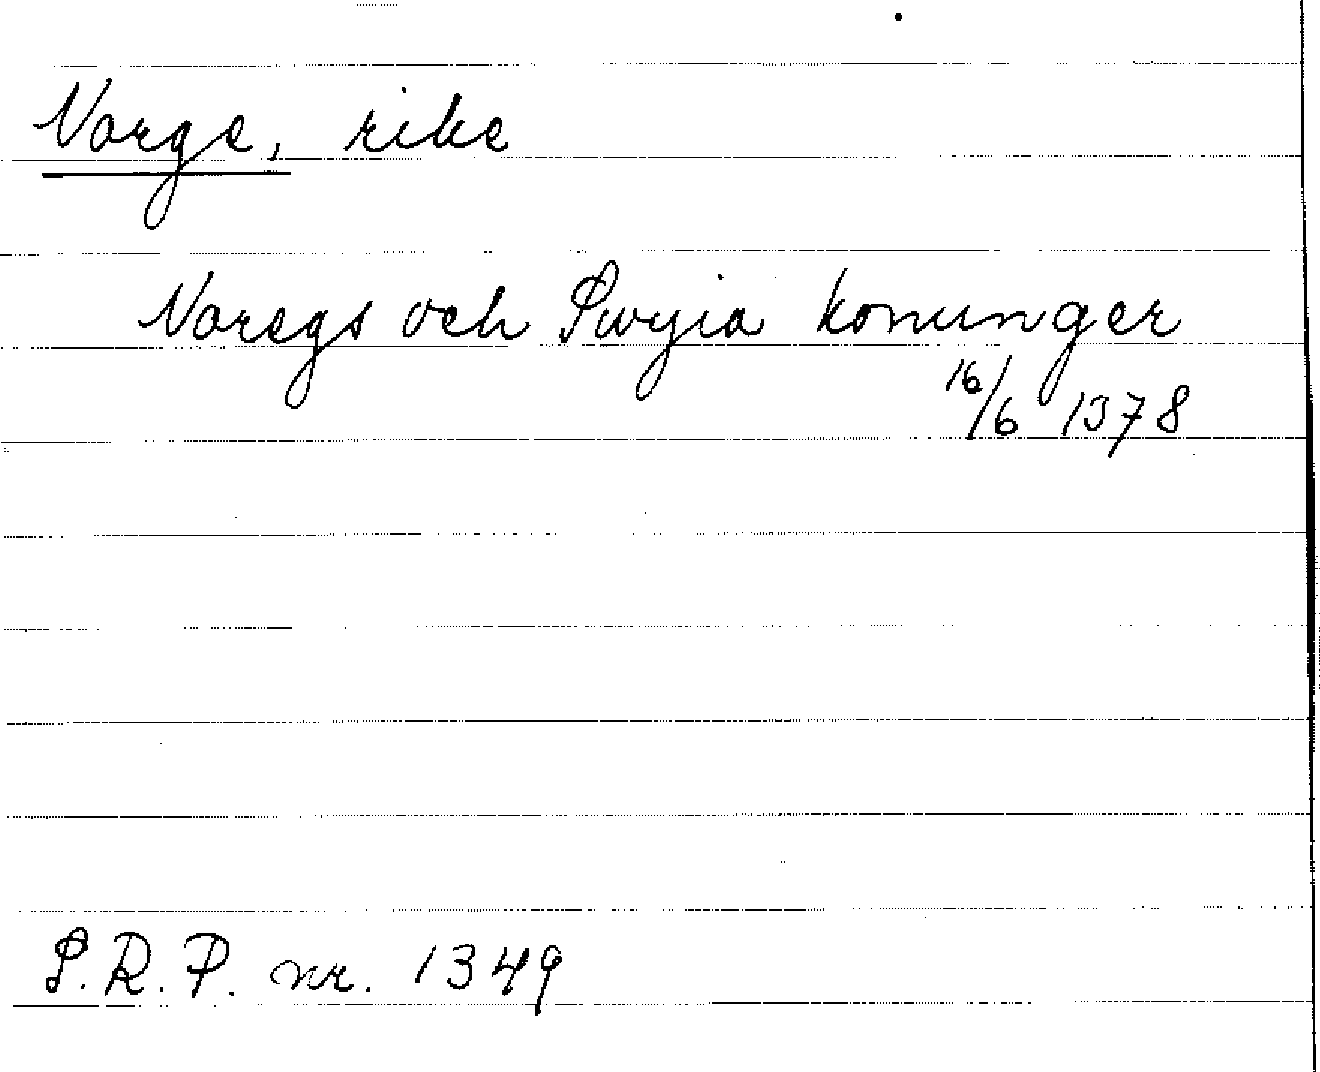 Norge, rike
Noregs och Swyia konunger
16/6 1378
S.R.P. nr. 1349